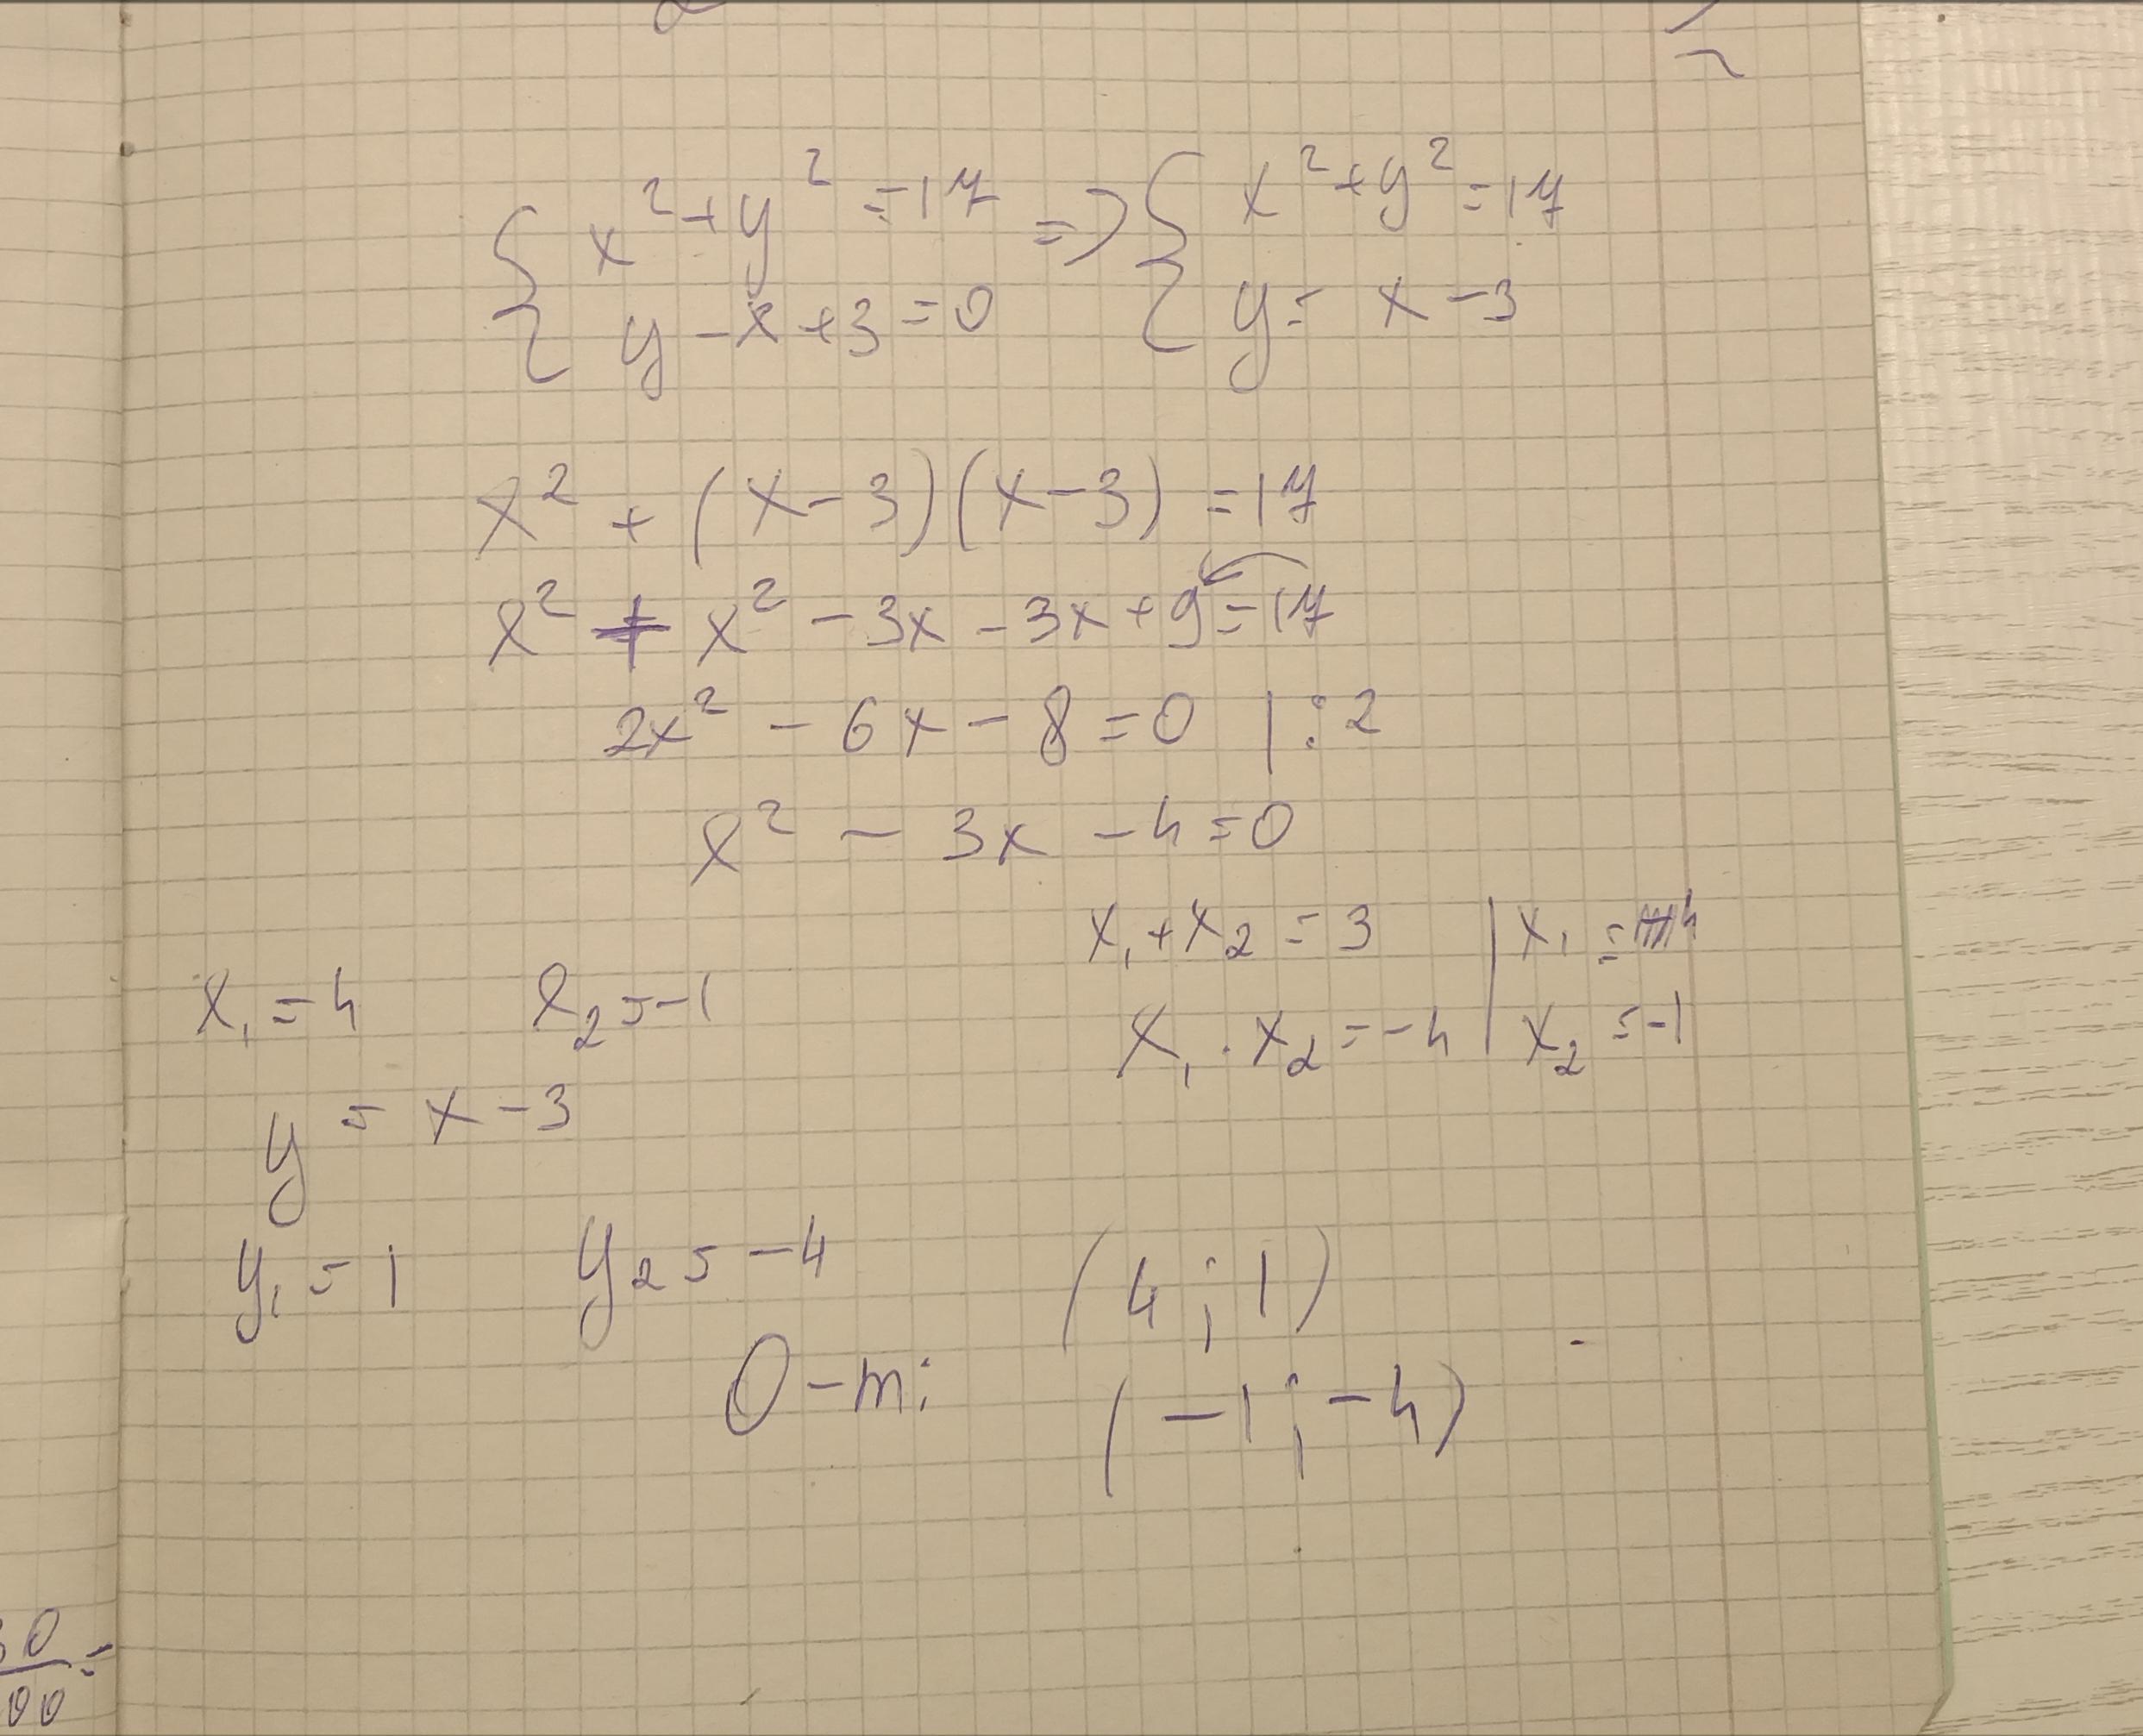 { x² + y² = 17 => { x² + y² = 17
y - x + 3 = 0 y = x - 3
x² + (x - 3)(x - 3) = 17
x² + x² - 3x - 3x + 9 = 17
2x² - 6x - 8 = 0 | : 2
x² - 3x - 4 = 0
x₁ + x₂ = 3 | x₁ = 4
x₁ = 4 x₂ = -1
x₁ · x₂ = -4 | x₂ = -1
y = x - 3
y₁ = 1 y₂ = -4 (4 ; 1)
O-m: (-1 ; -4)
00